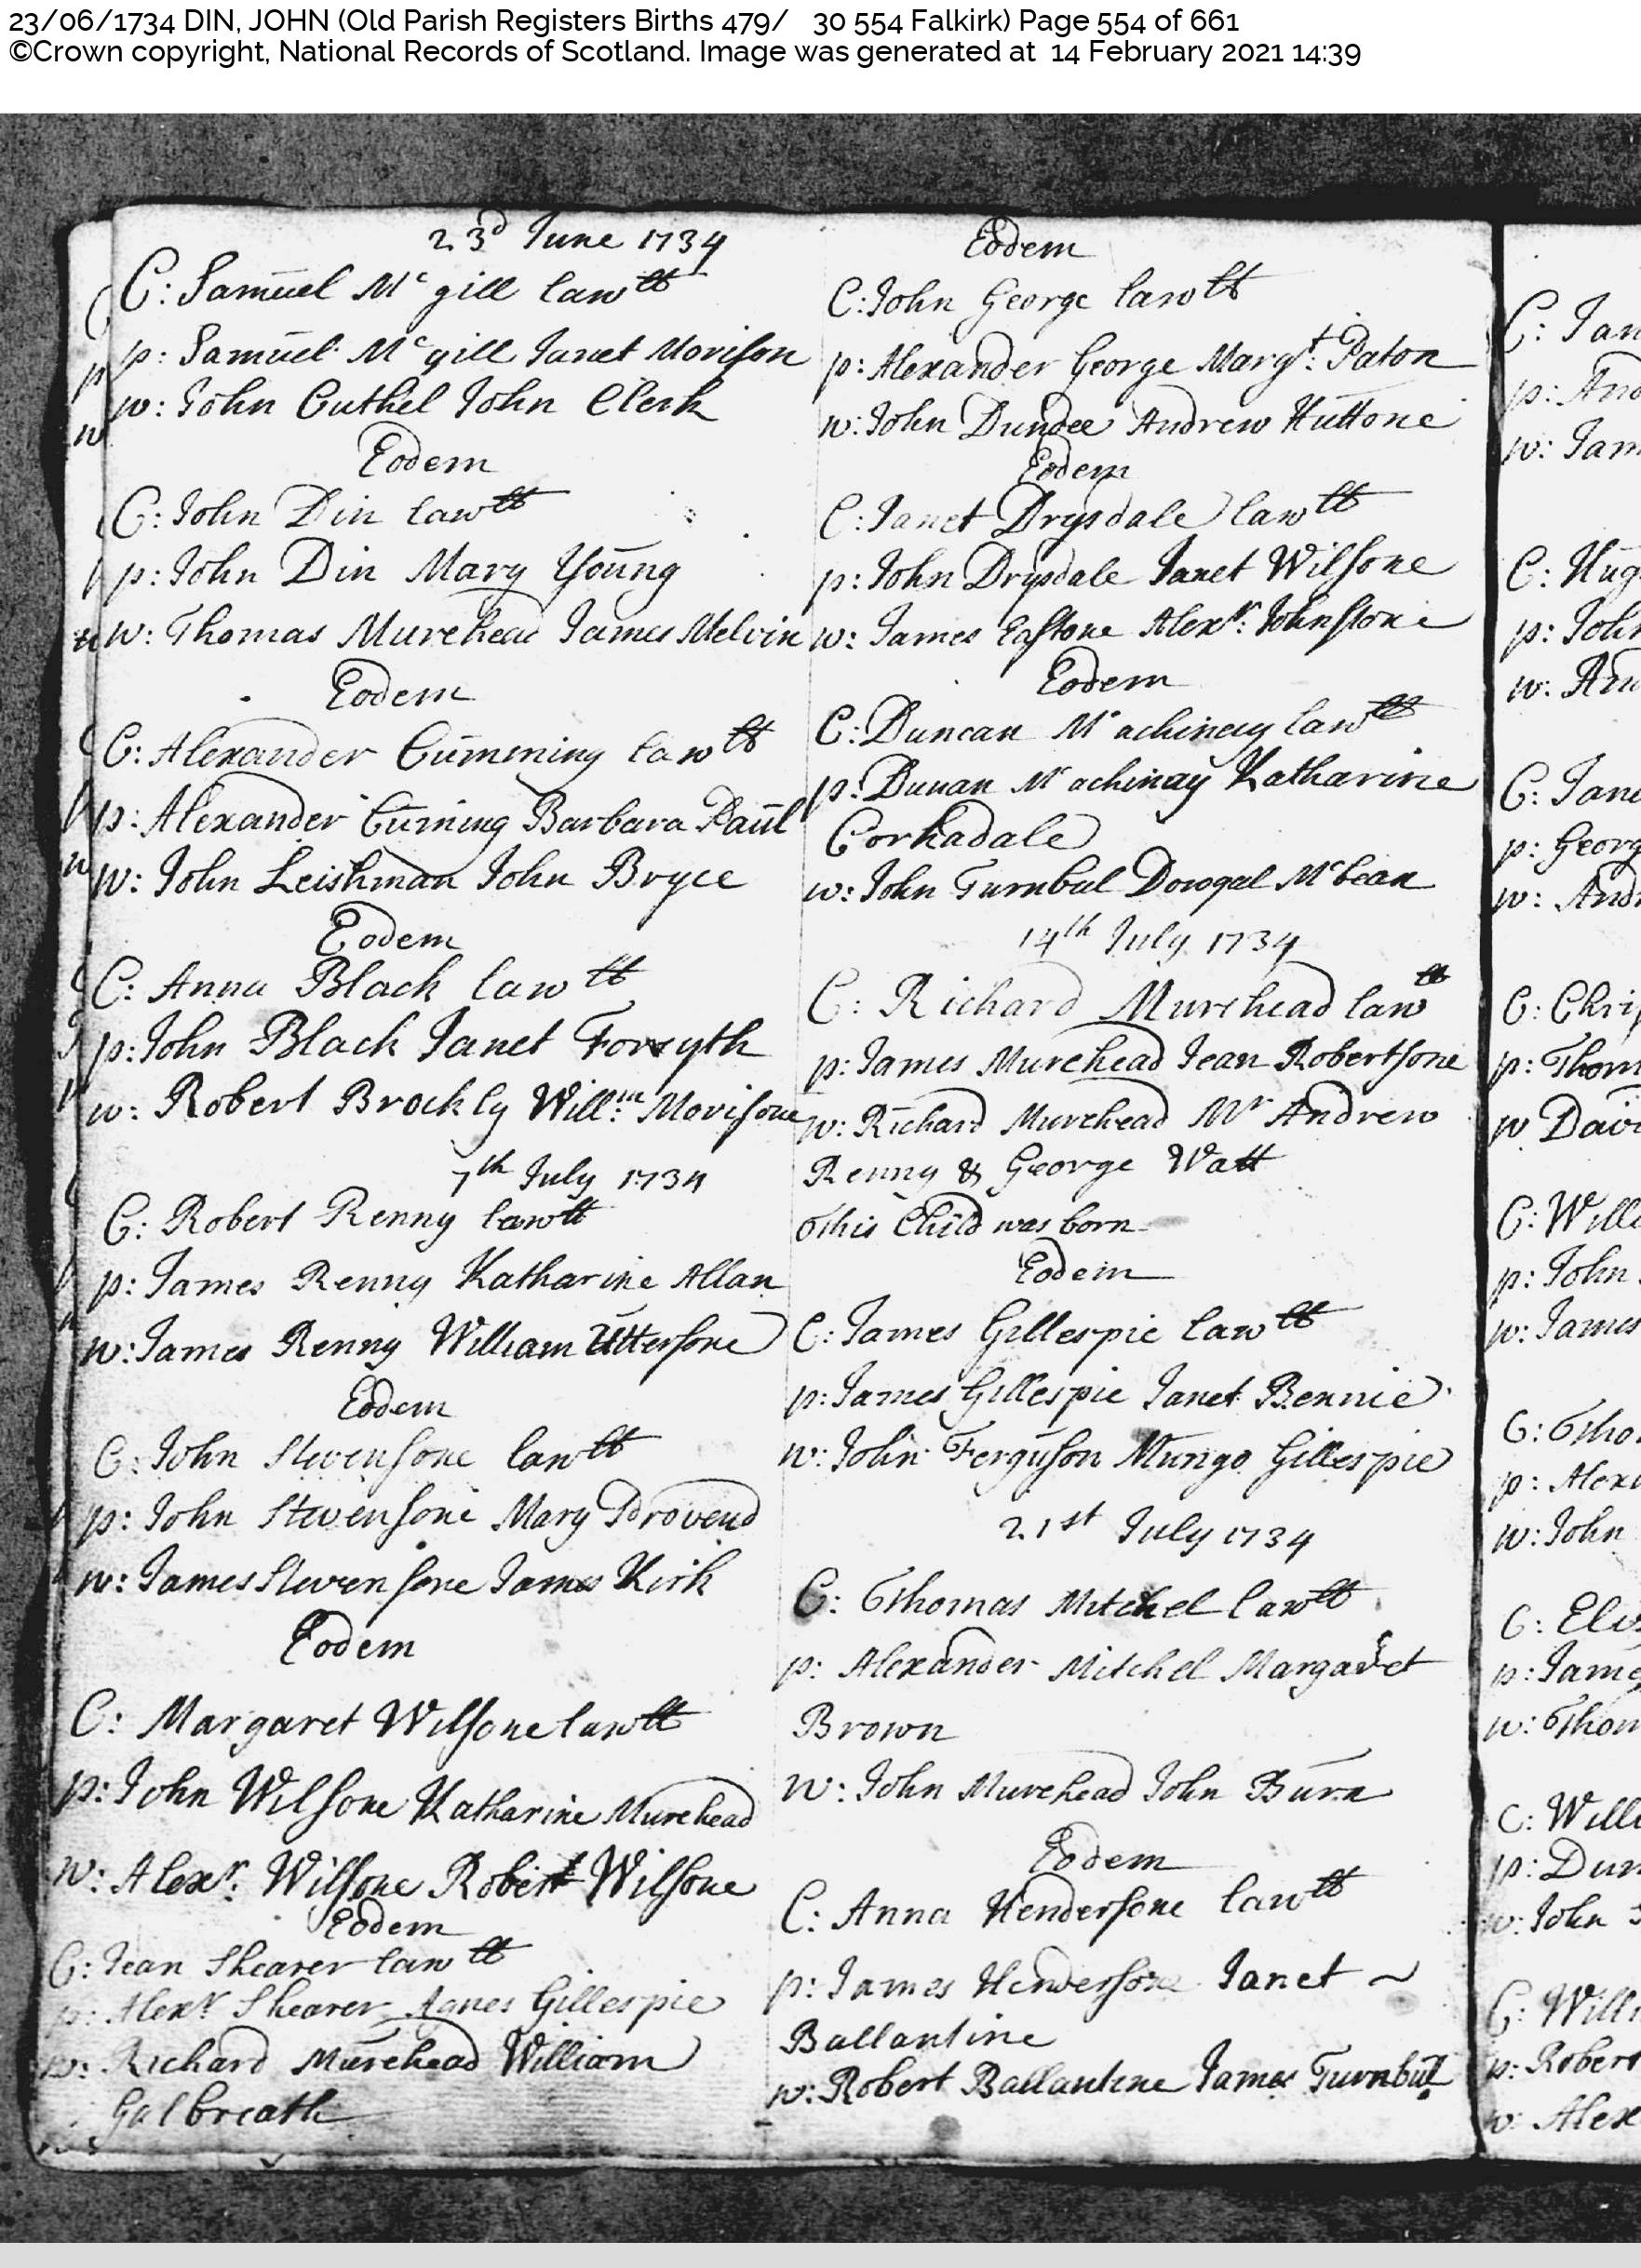 23/06/1734 DIN, JOHN (Old Parish Registers Births 479/ 30 554 Falkirk) Page 554 of 661
©Crown copyright, National Records of Scotland. Image was generated at 14 February 2021 14:39
23d June 1734
C: Samuel Mc gill lawtt
p: Samuel Mc gill Janet Morison
w: John Cuthel John Clerk
Eodem
C: John Din lawtt
p: John Din Mary Young
w: Thomas Murehead James Melvin
Eodem
C: Alexander Cumming lawtt
p: Alexander Cuming Barbara Paul
w: John Leishman John Bryce
Eodem
C: Anna Black lawtt
p: John Black Janet Forsyth
w: Robert Brockly Willm: Morisone
7th July 1734
C: Robert Renny lawtt
p: James Renny Katharine Allan
w: James Renny William Uttersone
Eodem
C: John Stevensone lawtt
p: John Stevensone Mary Provend
w: James Stevensone James Kirk
Eodem
C: Margaret Wilsone lawtt
p: John Wilsone Katharine Murehead
w: Alexr: Wilsone Robert Wilsone
Eodem
C: Jean Shearer lawtt
p: Alexr Shearer Agnes Gillespie
w: Richard Murehead William
Galbreath
Eodem
C: John George lawtt
p: Alexander George Margt: Paton
w: John Dundee Andrew Huttone
Eodem
C: Janet Drysdale lawtt
p: John Drysdale Janet Wilsone
w: James Eastone Alexr: Johnstone
Eodem
C: Duncan Mc achinay lawtt
p: Duncan Mc achinay Katharine
Corkadale
w: John Turnbul Dowgal Mcbean
14th July 1734
C: Richard Murehead lawtt
p: James Murehead Jean Robertsone
w: Richard Murehead Mr Andrew
Renny & George Watt
This Child was born
Eodem
C: James Gillespie lawtt
p: James Gillespie Janet Bennie
w: John Ferguson Mungo Gillespie
21st July 1734
C: Thomas Mitchel lawtt
p: Alexander Mitchel Margaret
Brown
w: John Murehead John Burn
Eodem
C: Anna Hendersone lawtt
p: James Hendersone Janet ~
Ballantine
w: Robert Ballantine James Turnbull
C: Jan
p: And
w: Jam
C: Hug
p: John
w: And
C: Jane
p: Georg
w: And
C: Chris
p: Thom
w Davi
C: Willi
p: John
w: James
C: Tho
p: Alex
w: John
C: Eliz
p: Jame
w: Thom
C: Willi
p: Dun
w: John
C: Willi
p: Robert
w: Alex